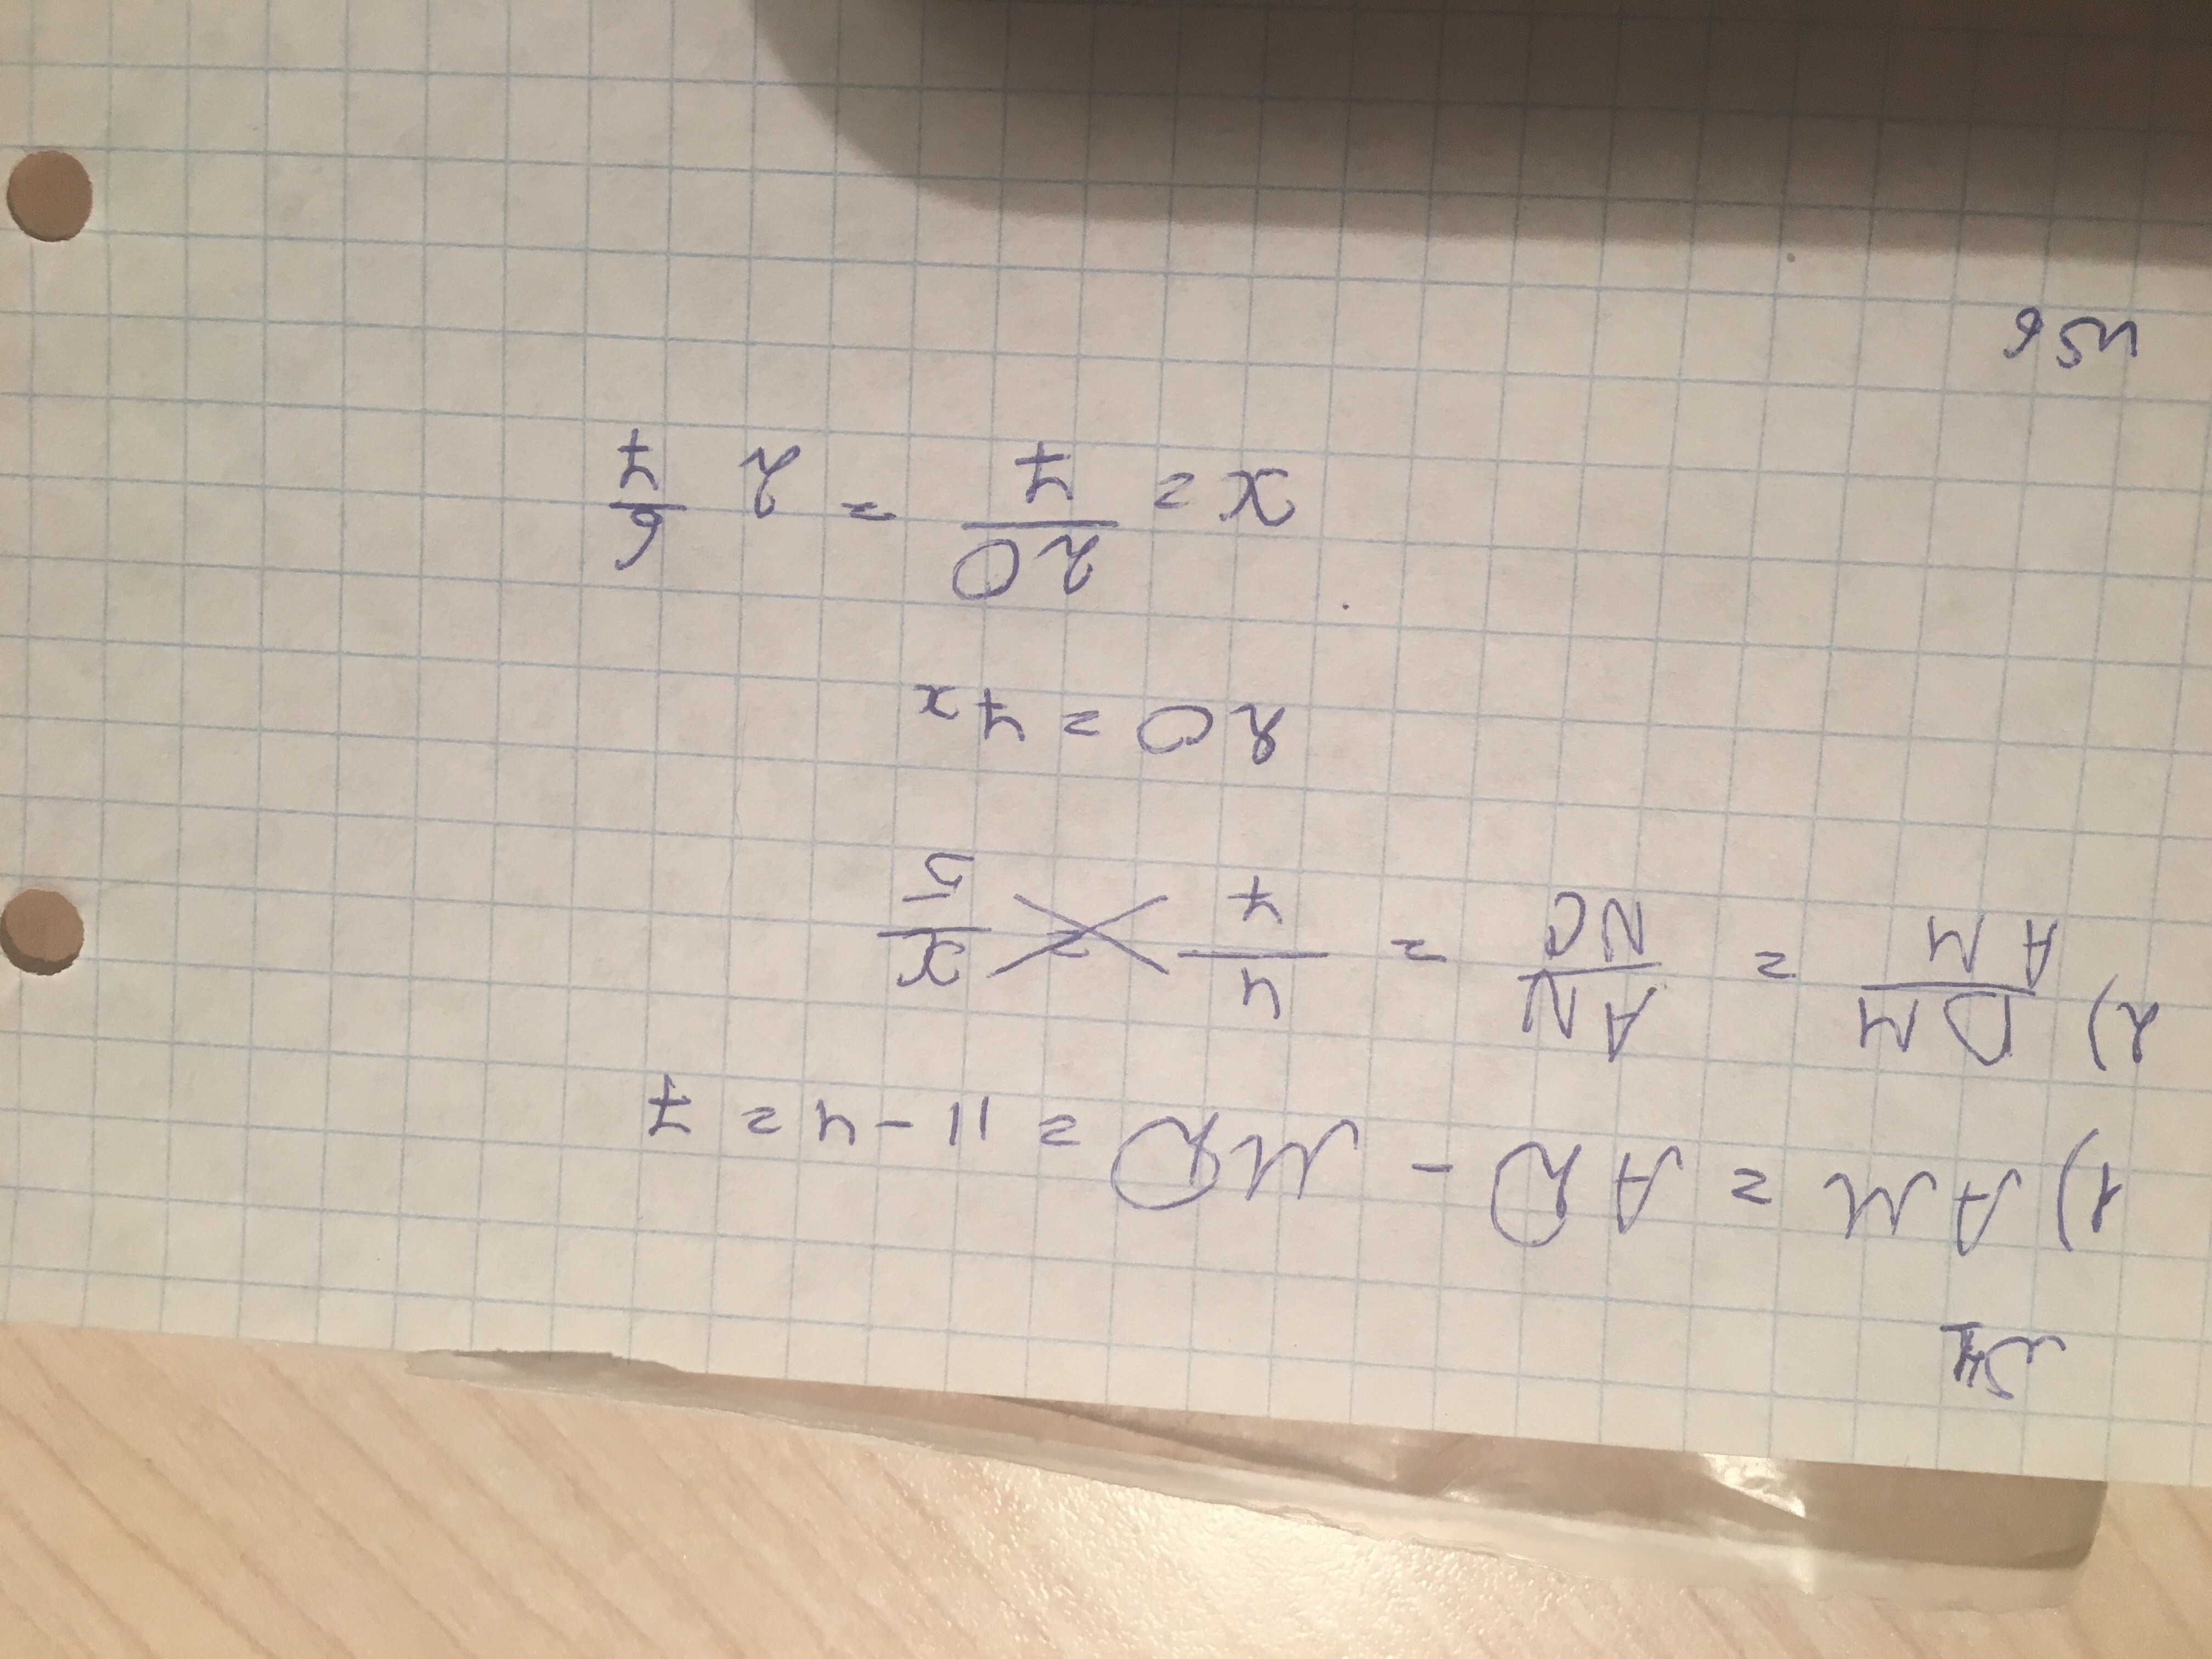 1) AM = AD - MD = 11 - 4 = 7
2) DM/AM = AN/NC = 4/7 = x/5
20 = 7x
x = 20/7 = 2 6/7
n56